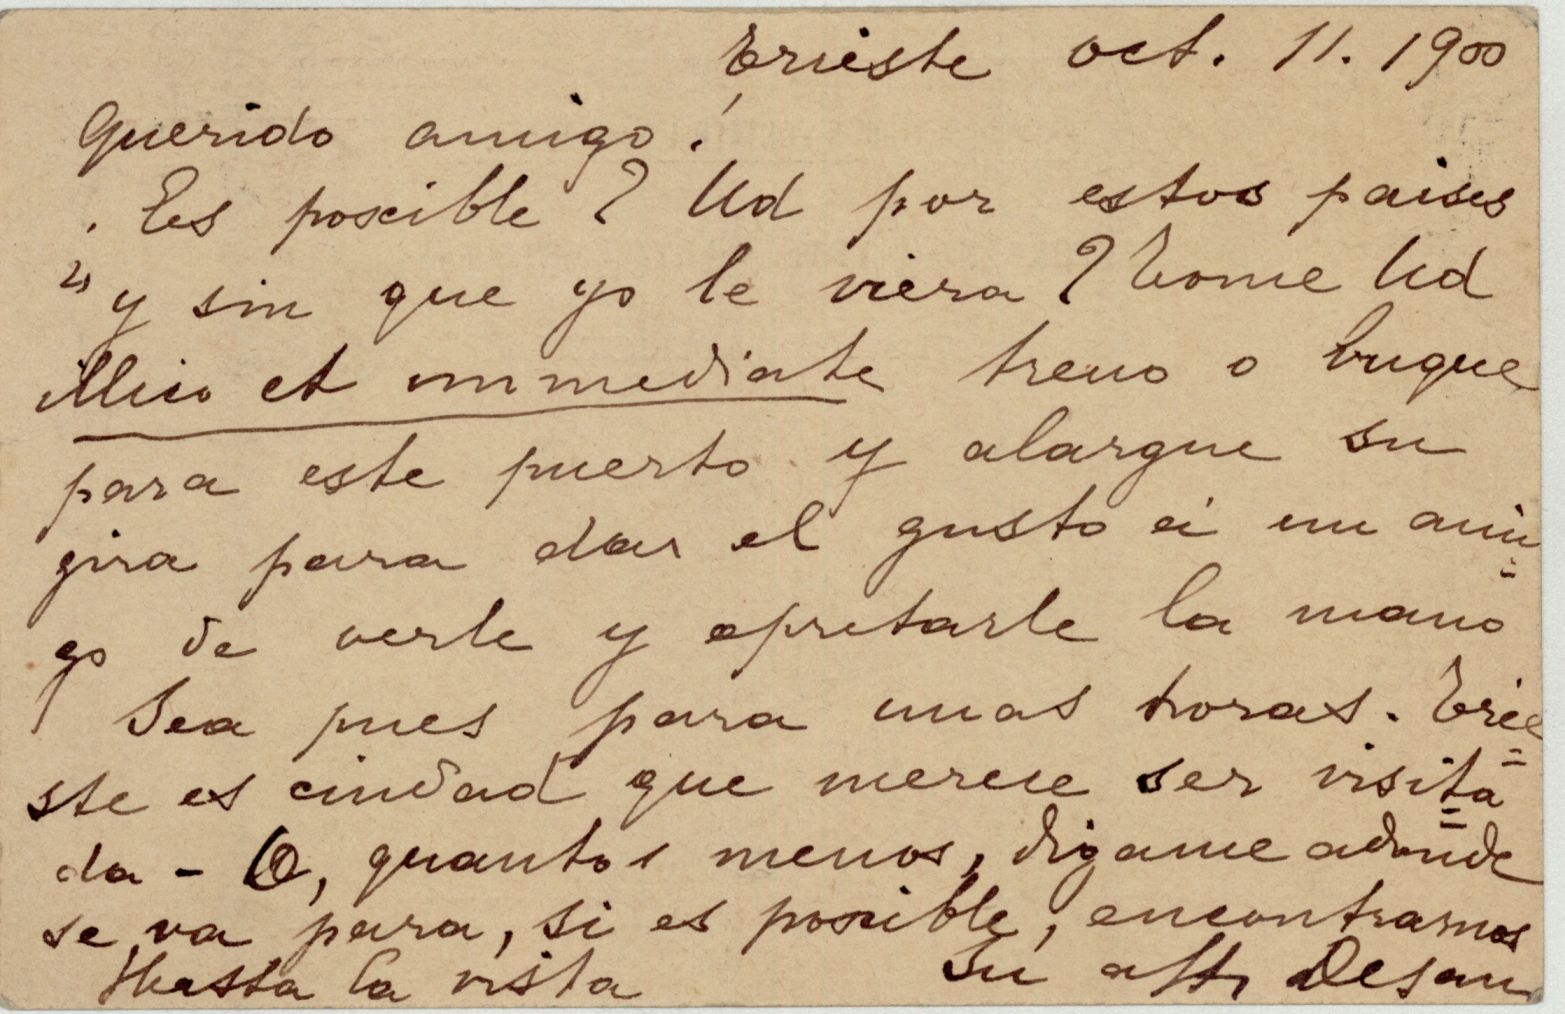 Trieste oct. 11. 1900
Querido amigo!
. Es poxible? Ud por estos paises
y sin que yo le viera? Tome Ud
illico et immediate treno o buque
para este puerto y alargue su
gira para dar el gusto á un ami=
go de verle y apretarle la mano
Sea pues para unas horas. Trie=
ste es ciudad que merece ser visita=
da - O, quantos menos, digame adonde
se va para, si es poxible, encontrarnos
Hasta la vista Su aff